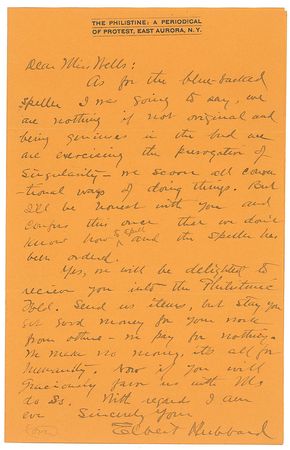 THE PHILISTINE: A PERIODICAL
OF PROTEST, EAST AURORA, N.Y.
Dear Miss Wells:
As for the blue-backed
Speller I was going to say, we
are nothing if not original and
being geniuses in the bud we
are exercising the prerogative of
Singularity — we scorn all conven
-tional ways of doing things. But
I'll be honest with you and
confess this once that we don't
know how to spell and the speller has
been ordered.
Yes, we will be delighted to
receive you into the Philistinic
fold. Send us items, but stay you
get good money for your work
from others — we pay for nothing.
We make no money, its all for
humanity. Now if you will
graciously favor us with
do so. With regard I am
ever Sincerely Yours
Elbert Hubbard